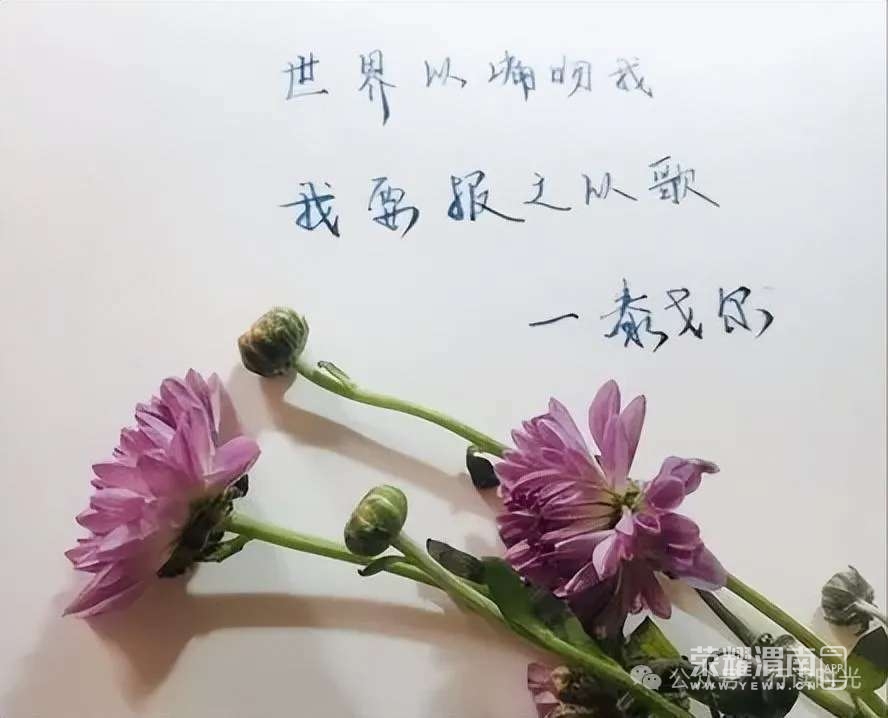 世界以痛吻我
我要报之以歌
一泰戈尔
荣耀渭南
APP
WWW.YEWN.CN
公众号
时光